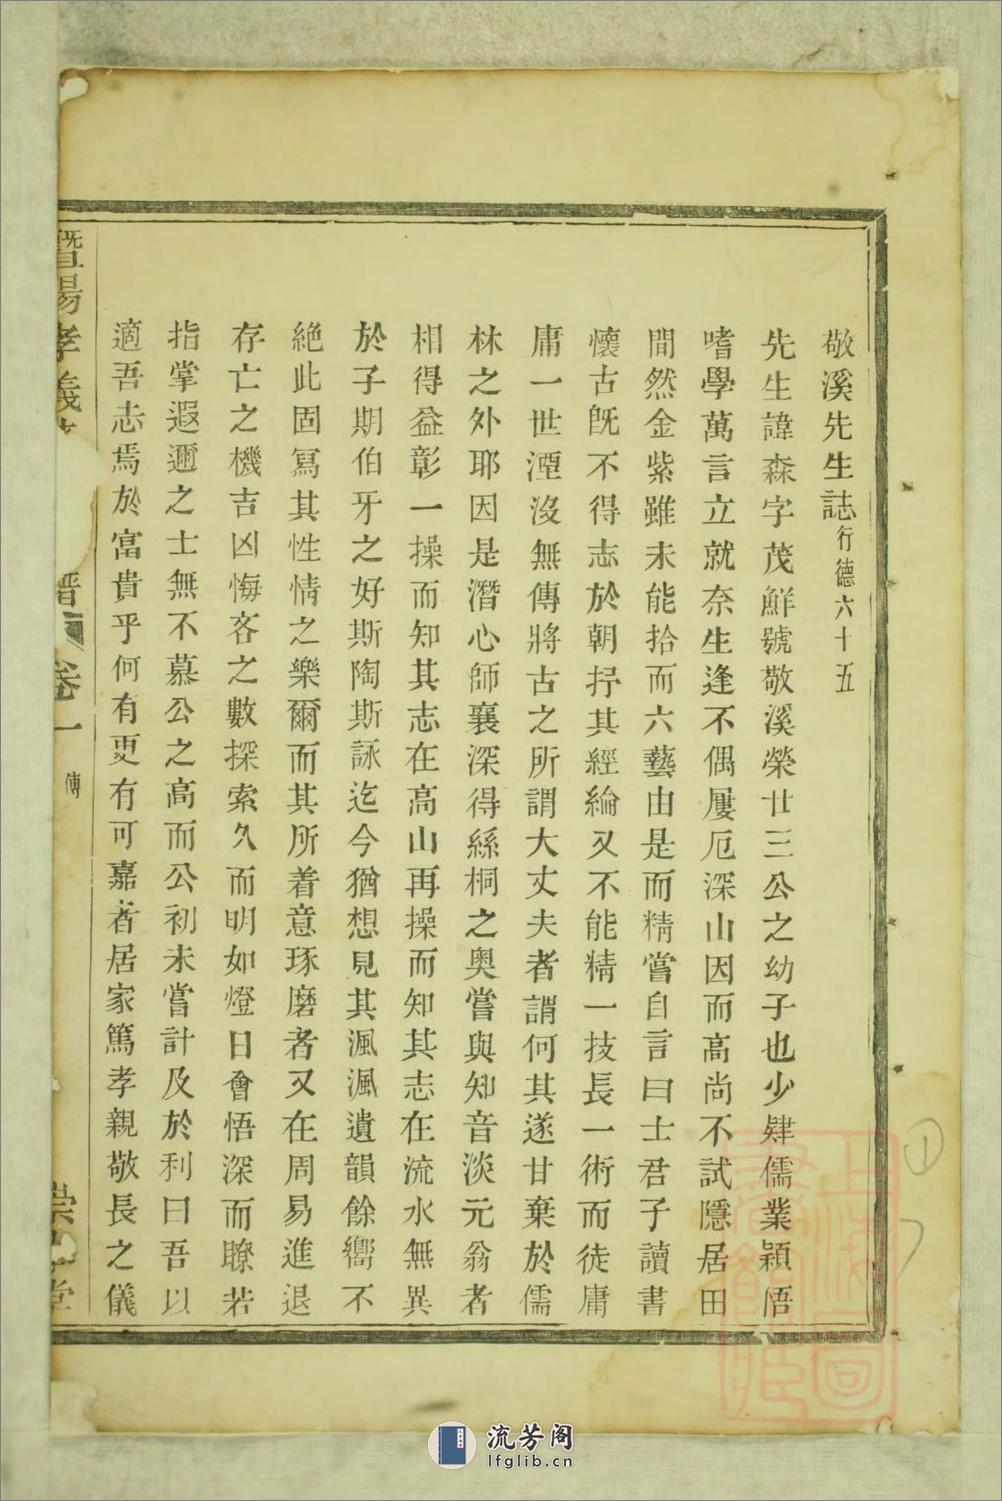 敬溪先生誌行德六十五
先生諱森字茂鮮號敬溪榮廿三公之幼子也少肄儒業穎悟
嗜學萬言立就奈生逢不偶屢厄深山因而高尚不試隱居田
間然金紫雖未能拾而六藝由是而精嘗自言曰士君子讀書
懷古旣不得志於朝抒其經綸又不能精一技長一術而徒庸
庸一世湮沒無傳將古之所謂大丈夫者謂何其遂甘棄於儒
林之外耶因是潛心師襄深得絲桐之奧嘗與知音淡元翁者
相得益彰一操而知其志在高山再操而知其志在流水無異
於子期伯牙之好斯陶斯詠迄今猶想見其渢渢遺韻餘嚮不
絕此固寫其性情之樂爾而其所着意琢磨者又在周易進退
存亡之機吉凶悔吝之數探索久而明如燈日會悟深而瞭若
指掌遐邇之士無不慕公之高而公初未嘗計及於利曰吾以
適吾志焉於富貴乎何有更有可嘉者居家篤孝親敬長之儀
暨陽孝義
譜
卷一
傳
崇
堂
上海圖
書館
流芳阁
lfglib.cn
①